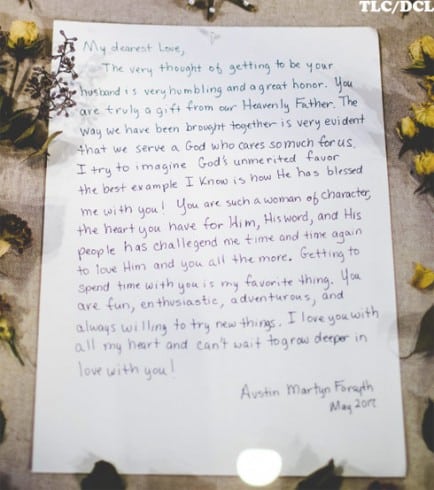 TLC/DCL
My dearest Love,
The very thought of getting to be your
husband is very humbling and a great honor. You
are truly a gift from our Heavenly Father. The
way we have been brought together is very evident
that we serve a God who cares so much for us.
I try to imagine God's unmerited favor
the best example I know is how He has blessed
me with you! You are such a woman of character,
the heart you have for Him, His word, and His
people has challegend me time and time again
to love Him and you all the more. Getting to
spend time with you is my favorite thing. You
are fun, enthusiastic, adventurous, and
always willing to try new things. I love you with
all my heart and can't wait to grow deeper in
love with you!
Austin Martyn Forsyth
May 2017